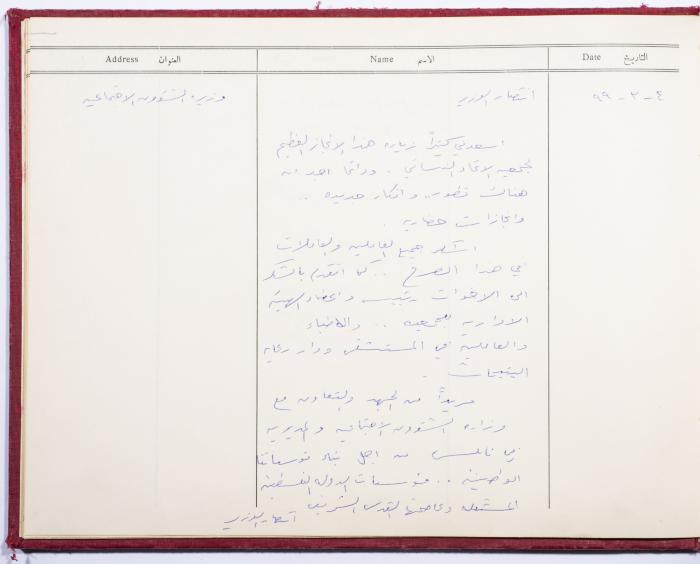 التاريخ Date الاسم Name العنوان Address
٤ - ٣ - ٩٩ انتصار الوزير وزيرة الشؤون الاجتماعية
اسعدني كثيراً زيارة هذا الانجاز العظيم
لجمعية الاتحاد النسائي .. ودائما اجد ان
هنالك تطور وافكار جديدة ..
وانجازات حضارية .
اشكر جميع العاملين والعاملات
في هذا الصرح .. كما اتقدم بالشكر
الى الاخوات رئيسة واعضاء الهيئة
الادارية للجمعية .. والاطباء
والعاملين في المستشفى ودار رعاية
اليتيمات .
مزيداً من الجهد والتعاون مع
وزارة الشؤون الاجتماعية ومديرية
في نابلس من اجل بناء مؤسساتنا
الوطنية .. مؤسسات الدولة الفلسطينية
المستقلة وعاصمتها القدس الشريف
انتصار الوزير